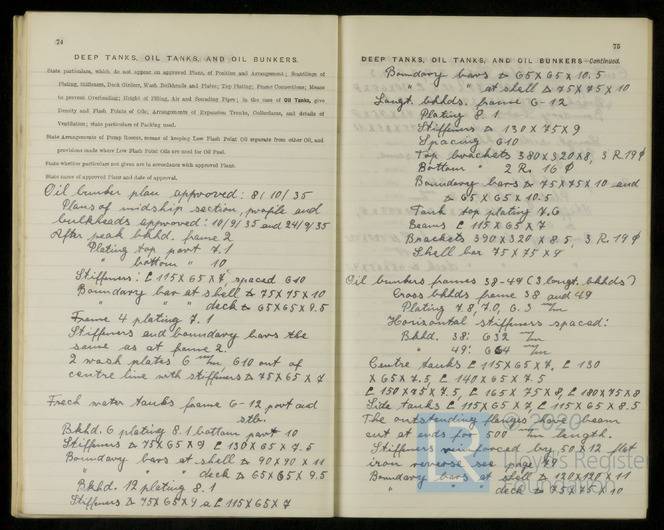 74
DEEP TANKS, OIL TANKS, AND OIL BUNKERS.
State particulars, which do not appear on approved Plans, of Position and Arrangement; Scantlings of
Plating, Stiffeners, Deck Girders, Wash Bulkheads and Plates; Top Plating; Frame Connections; Means
to prevent Overloading; Height of Filling, Air and Sounding Pipes; in the case of Oil Tanks, give
Density and Flash Points of Oils, Arrangements of Expansion Trunks, Cofferdams, and details of
Ventilation; state particulars of Packing used.
State Arrangements of Pump Rooms, means of keeping Low Flash Point Oil separate from other Oil, and
provisions made where Low Flash Point Oils are used for Oil Fuel.
State whether particulars not given are in accordance with approved Plans.
State name of approved Plan and date of approval.
Oil bunker plan approved: 8/10/35
Plans of midship section, profile and
bulkheads approved: 10/9/35 and 24/9/35
After peak bkhd. frame 2
Plating top part 7.1
" bottom " 10
Stiffeners: L 115X65X7, spaced 610
Boundary bar at shell 75X75X10
" " " deck 65X65X9.5
Frame 4 plating 7.1
Stiffeners and boundary bars the
same as at frame 2.
2 wash plates 6 m/m 610 out of
centre line with stiffeners 75X65X7
Frech water tanks frame 6-12 port and
stb.
Bkhd. 6 plating 8.1 bottom part 10
Stiffeners 75X65X9 L 130X65X7.5
Boundary bars at shell 90X90X11
" " " deck 65X65X9.5
Bkhd. 12 plating 8.1
Stiffeners 75X65X9 a L 115X65X7
75
DEEP TANKS, OIL TANKS, AND OIL BUNKERS—Continued.
Boundary bars 65X65X10.5
" " at shell 75X75X10
Longt. bkhds. frame 6-12
Plating 8.1
Stiffeners 130X75X9
Spacing 610
Top brackets 380X320X8, 3 R. 19
Bottom " 2 R. 16
Boundary bars 75X75X10 and
65X65X10.5
Tank top plating 7.6
Beams L 115X65X7
Brackets 390X320X8.5, 3 R. 19
Shell bar 75X75X9
Oil bunkers frames 38-49 (3 longt. bkhds)
Cross bkhds frame 38 and 49
Plating 7.8, 7.0, 6.3 m/m
Horisontal stiffeners spaced:
Bkhd. 38: 632 m/m
" 49: 664 m/m
Centre tanks L 115X65X7, L 130
X65X7.5, L 140X65X7.5
L 150X75X7.5, L 165X75X8, L 180X75X8
Side tanks L 115X65X7, L 115X65X8.5
The outstanding flanges have been
cut at ends for 500 m/m length.
Stiffeners reinforced by 50X12 flat
iron reverse see page 49
Boundary bars at shell 120X120X11
" " " deck 75X75X10
© 2020
Lloyd's Register
Foundation